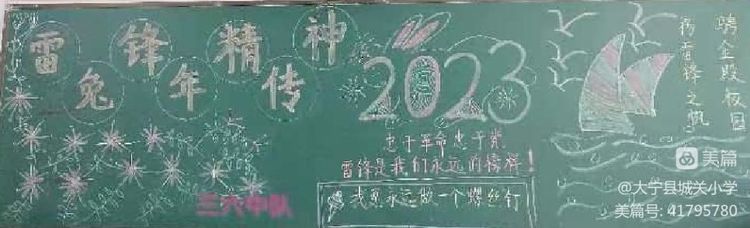 雷锋精神
兔年传
2023
忠于革命忠于党
雷锋是我们永远的榜样！
我愿永远做一个螺丝钉
扬雷锋之帆
三六中队
美篇
@大宁县城关小学
美篇号: 41795780